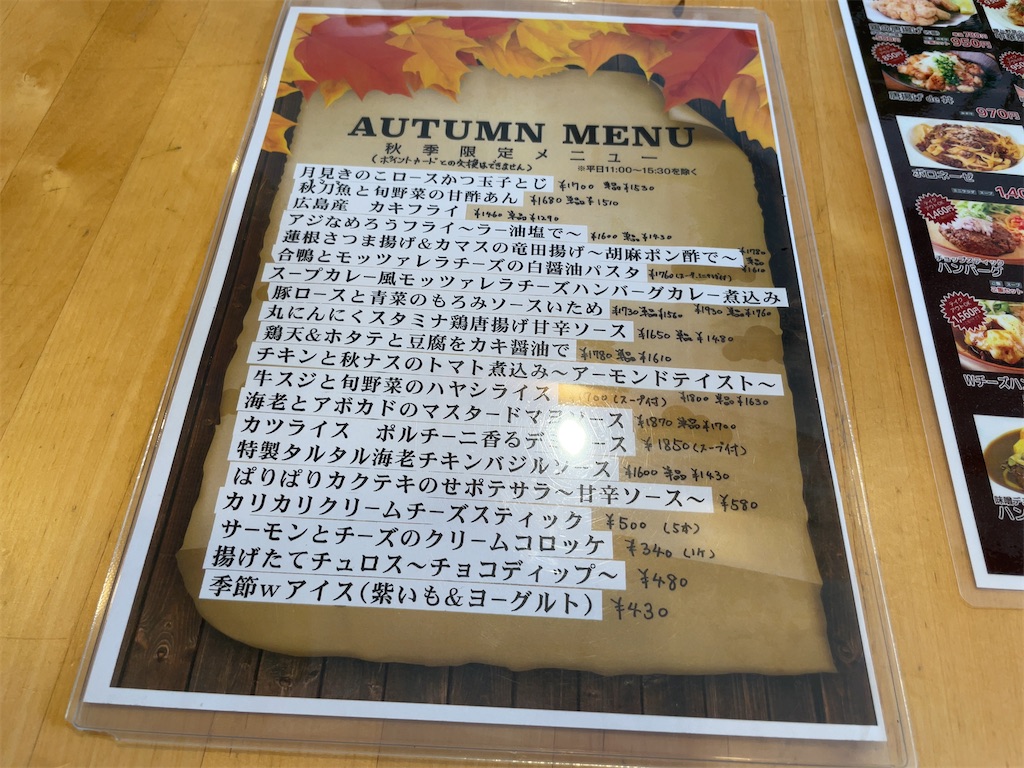 AUTUMN MENU
秋季限定メニュー
(ポイントカードとの交換はできません)
※平日11:00~15:30を除く
月見きのこロースかつ玉子とじ ¥1700 単品¥1530
秋刀魚と旬野菜の甘酢あん ¥1680 単品¥1510
広島産 カキフライ ¥1460 単品¥1290
アジなめろうフライ~ラー油塩で~ ¥1600 単品¥1430
蓮根さつま揚げ&カマスの竜田揚げ~胡麻ポン酢で~ ¥1780 単品¥1610
合鴨とモッツァレラチーズの白醤油パスタ ¥1760
スープカレー風モッツァレラチーズハンバーグカレー煮込み
¥1930 単品¥1760
豚ロースと青菜のもろみソースいため ¥1730 単品¥1560
丸にんにくスタミナ鶏唐揚げ甘辛ソース ¥1650 単品¥1480
鶏天&ホタテと豆腐をカキ醤油で ¥1780 単品¥1610
チキンと秋ナスのトマト煮込み~アーモンドテイスト~
¥1800 単品¥1630
牛スジと旬野菜のハヤシライス (スープ付)
海老とアボカドのマスタードマヨソース ¥1870 単品¥1700
カツライス ポルチーニ香るデミソース ¥1850(スープ付)
特製タルタル海老チキンバジルソース ¥1600 単品¥1430
ぱりぱりカクテキのせポテサラ~甘辛ソース~ ¥580
カリカリクリームチーズスティック ¥500 (5本)
サーモンとチーズのクリームコロッケ ¥340 (1ケ)
揚げたてチュロス~チョコディップ~ ¥480
季節wアイス(紫いも&ヨーグルト) ¥430
950円
850円
唐揚げde丼
970円
ボロネーゼ
1,460円
ハンバーグ
テイクアウトOK
1,560円
Wチーズハン